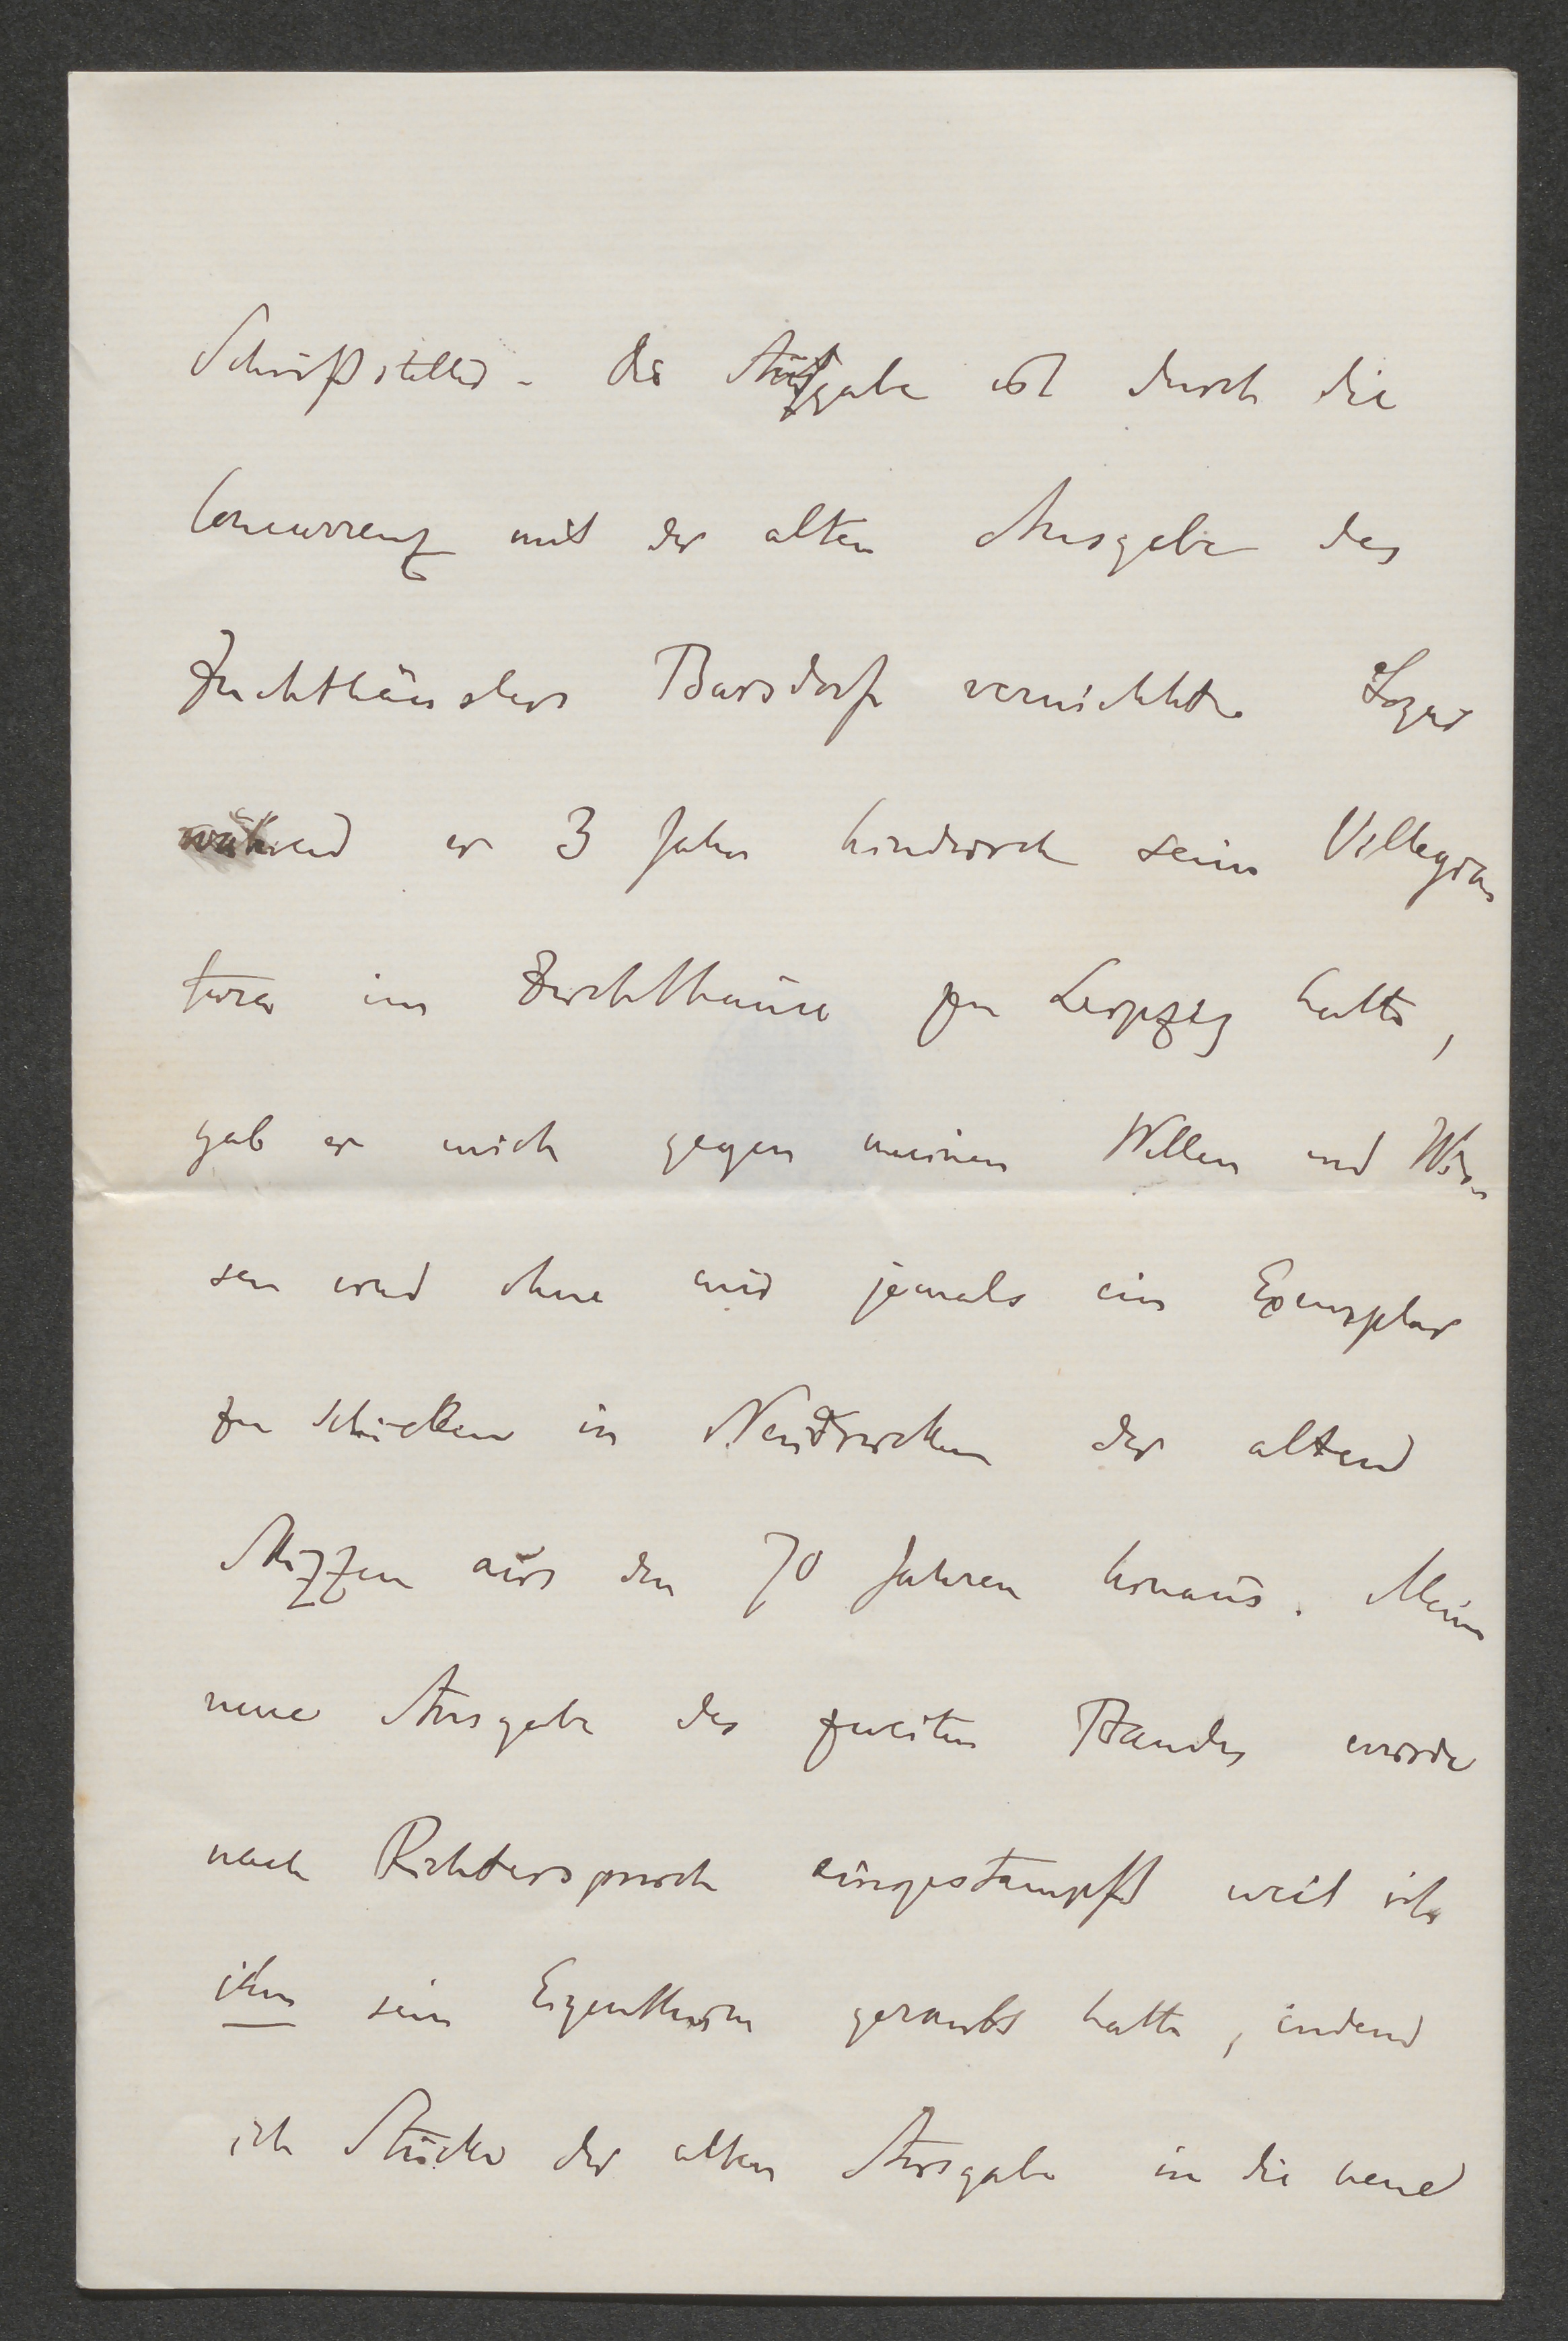 Schriftsteller. Die Ausgabe ist durch die
Concurrenz mit der alten Ausgabe des
Zuchthäuslers Barsdorf vernichtet. Sogar
während er 3 Jahre hindurch seine Villegia-
tura im Zuchthause zu Leipzig hatte,
gab er mich gegen meinen Willen und Wis-
sen und ohne mir jemals ein Exemplar
zu schicken in Neudrucken der alten
Skizzen aus den 70 Jahren heraus. Meine
neue Ausgabe des zweiten Bandes wurde
nach Richterspruch eingestampft weil ich
ihm sein Eigenthum geraubt hatte, indem
ich Stücke der alten Ausgabe in die neue